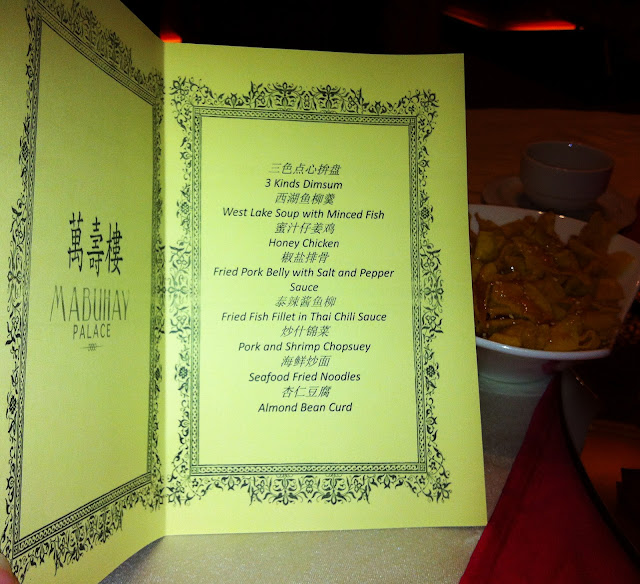 萬壽樓
MABUHAY
PALACE
三色点心拚盘
3 Kinds Dimsum
西湖鱼柳羹
West Lake Soup with Minced Fish
蜜汁仔姜鸡
Honey Chicken
椒盐排骨
Fried Pork Belly with Salt and Pepper
Sauce
泰辣酱鱼柳
Fried Fish Fillet in Thai Chili Sauce
炒什锦菜
Pork and Shrimp Chopsuey
海鲜炒面
Seafood Fried Noodles
杏仁豆腐
Almond Bean Curd